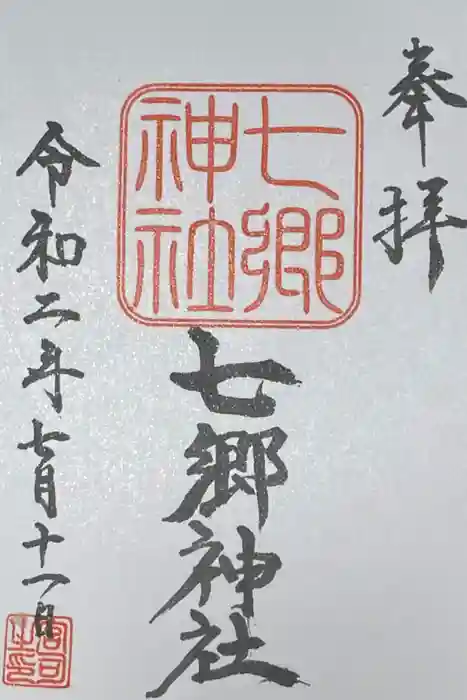 奉拝
七郷
神社
七郷神社
令和二年七月十一日
宮司
之印